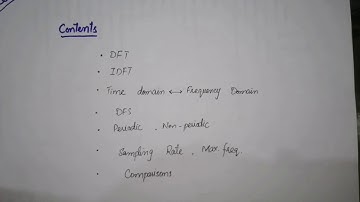 Contents
• DFT
• IDFT
• Time domain ⟷ Frequency Domain
• DFS
• Periodic, Non-periodic
• Sampling Rate, Max. freq.
• Comparisons